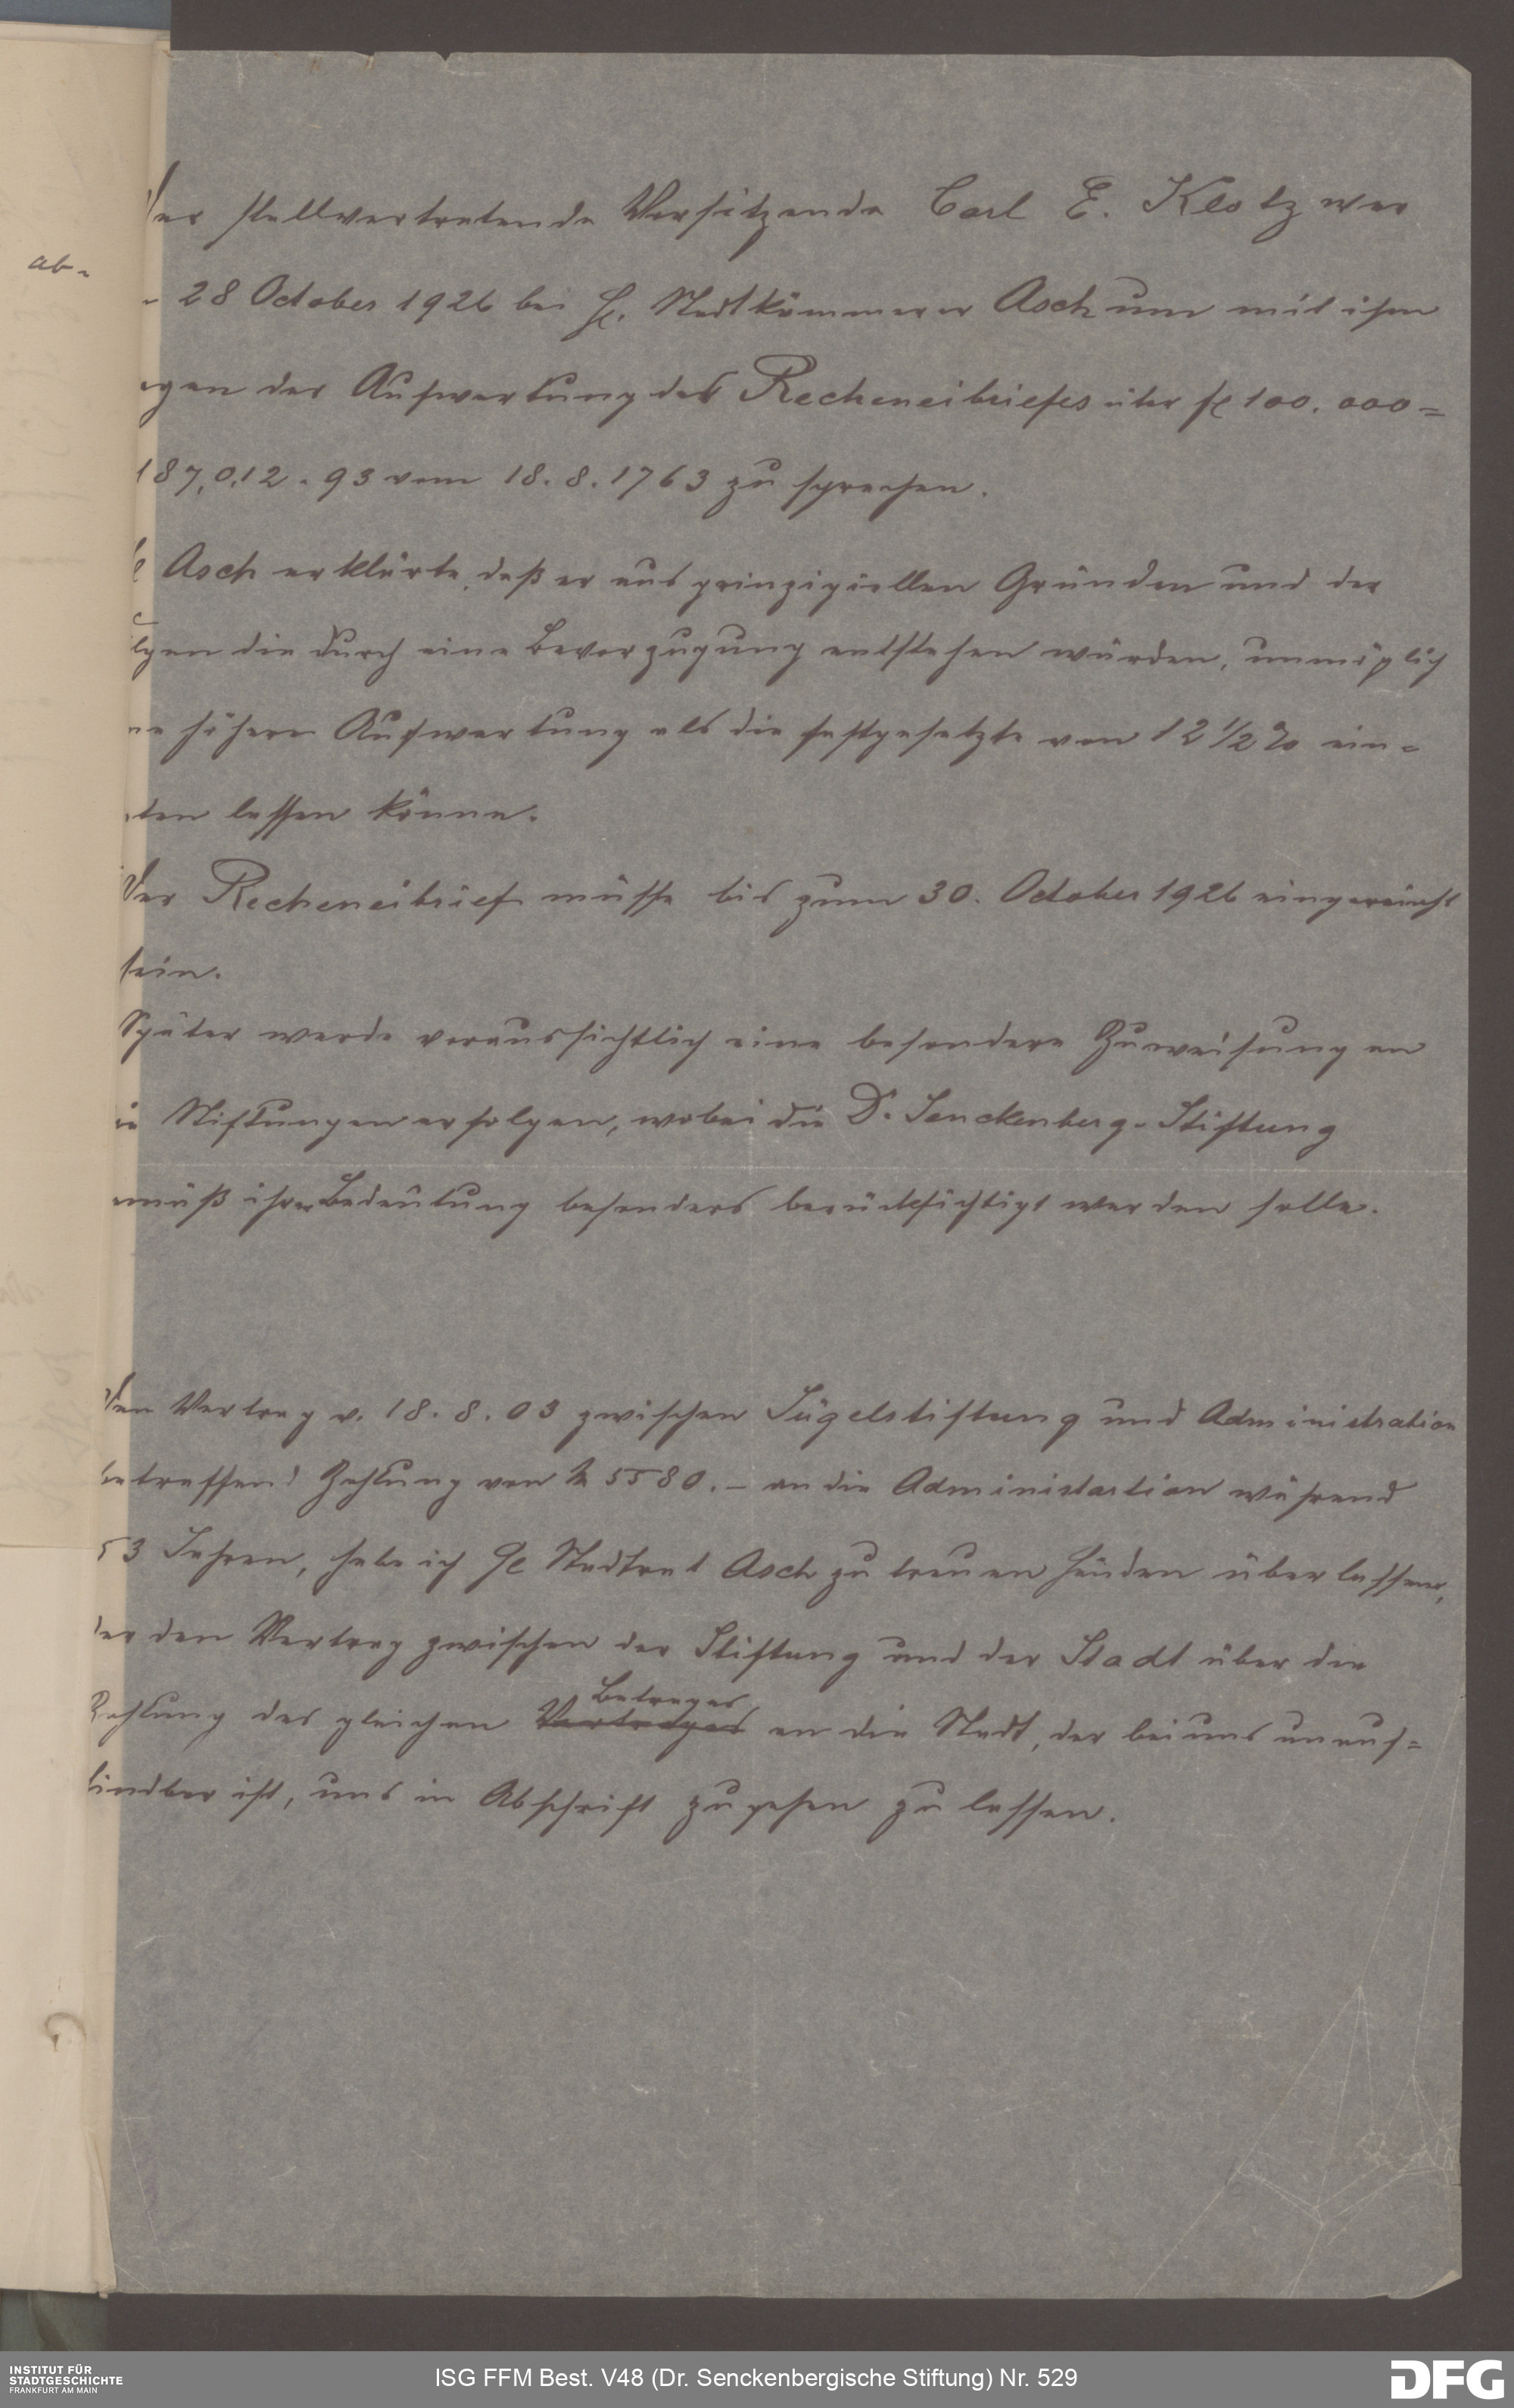 ab-
Der stellvertretende Vorsitzende Carl E. Klotz war
28 October 1926 bei H. Stadtkämmerer Asch um mit ihm
egen der Aufwertung des Recheneibriefes über fl 100.000=
187,012.93 vom 18.8.1763 zu sprechen.
Asch erklärte, daß er aus prinzipiellen Gründen und der
lgen die durch eine Bevorzugung entstehen würden, unmöglich
ne höhere Aufwertung als die festgesetzte von 12 1/2 % ein=
ten lassen könne.
Der Recheneibrief müsse bis zum 30. October 1926 eingereicht
sein.
Später werde voraussichtlich eine besondere Zuweisung an
ie Stiftungen erfolgen, wobei die Dr. Senckenberg. Stiftung
emäß ihrer Bedeutung besonders berücksichtigt werden solle.
Den Vertrag v. 18.8.03 zwischen Jügelstiftung und Administration
betreffend Zahlung von M 5580.- an die Administartion während
53 Jahren, habe ich H Stadtrat Asch zu treuen Händen überlassen,
der den Vertrag zwischen der Stiftung und der Stadt über die
Betrages
Zahlung des gleichen Vertrages an die Stadt, der bei uns unauf=
findbar ist, uns in Abschrift zugehen zu lassen.
INSTITUT FÜR
STADTGESCHICHTE
FRANKFURT AM MAIN
ISG FFM Best. V48 (Dr. Senckenbergische Stiftung) Nr. 529
DFG